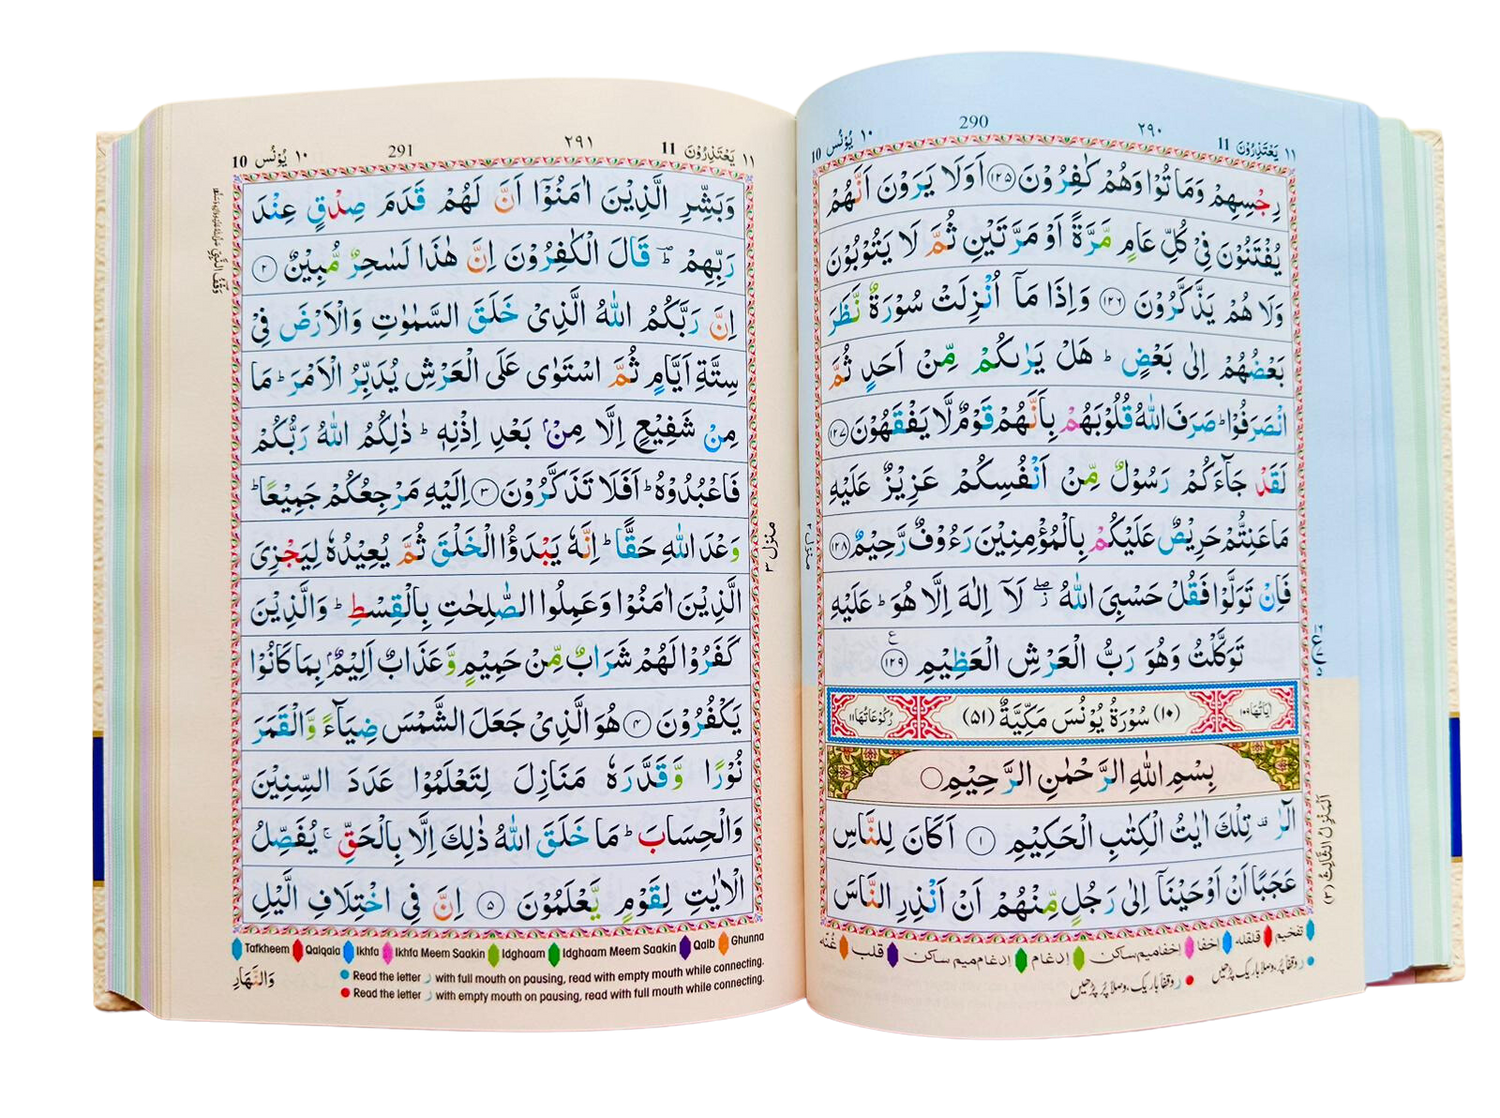 ١١ يَعْتَذِرُوْنَ 11 ٢٩٠ 290 ١٠ يُوْنُس 10
رِجْسِهِمْ وَمَا تُوْا وَهُمْ كٰفِرُوْنَ ﴿١٢٥﴾ اَوَلَا يَرَوْنَ اَنَّهُمْ
يُفْتَنُوْنَ فِيْ كُلِّ عَامٍ مَّرَّةً اَوْ مَرَّتَيْنِ ثُمَّ لَا يَتُوْبُوْنَ
وَلَا هُمْ يَذَّكَّرُوْنَ ﴿١٢٦﴾ وَاِذَا مَآ اُنْزِلَتْ سُوْرَةٌ نَّظَرَ
بَعْضُهُمْ اِلٰى بَعْضٍ ؕ هَلْ يَرٰىكُمْ مِّنْ اَحَدٍ ثُمَّ
انْصَرَفُوْا ؕ صَرَفَ اللّٰهُ قُلُوْبَهُمْ بِاَنَّهُمْ قَوْمٌ لَّا يَفْقَهُوْنَ ﴿١٢٧﴾
لَقَدْ جَآءَكُمْ رَسُوْلٌ مِّنْ اَنْفُسِكُمْ عَزِيْزٌ عَلَيْهِ
مَا عَنِتُّمْ حَرِيْصٌ عَلَيْكُمْ بِالْمُؤْمِنِيْنَ رَءُوْفٌ رَّحِيْمٌ ﴿١٢٨﴾
فَاِنْ تَوَلَّوْا فَقُلْ حَسْبِيَ اللّٰهُ ۖز لَآ اِلٰهَ اِلَّا هُوَ ؕ عَلَيْهِ
تَوَكَّلْتُ وَهُوَ رَبُّ الْعَرْشِ الْعَظِيْمِ ﴿١٢٩﴾ ع
اٰيَاتُهَا ١٠٩ (١٠) سُوْرَةُ يُوْنُسَ مَكِّيَّةٌ (٥١) رُكُوْعَاتُهَا ١١
بِسْمِ اللّٰهِ الرَّحْمٰنِ الرَّحِيْمِ
الٓرٰ ۗ تِلْكَ اٰيٰتُ الْكِتٰبِ الْحَكِيْمِ ﴿١﴾ اَكَانَ لِلنَّاسِ
عَجَبًا اَنْ اَوْحَيْنَآ اِلٰى رَجُلٍ مِّنْهُمْ اَنْ اَنْذِرِ النَّاسَ
تفخیم قلقله اخفا اخفامیم ساکن ادغام ادغام میم ساکن قلب غُنّه
ر وقفًا پُر، وصلًا باریک پڑھیں
ر وقفًا باریک، وصلًا پُر پڑھیں
اَلْمَنْزِلُ الثَّالِثُ (٣)
منزل ٣
١١ يَعْتَذِرُوْنَ 11 ٢٩١ 291 ١٠ يُوْنُس 10
وَبَشِّرِ الَّذِيْنَ اٰمَنُوْٓا اَنَّ لَهُمْ قَدَمَ صِدْقٍ عِنْدَ
رَبِّهِمْ ؔؕ قَالَ الْكٰفِرُوْنَ اِنَّ هٰذَا لَسٰحِرٌ مُّبِيْنٌ ﴿٢﴾
اِنَّ رَبَّكُمُ اللّٰهُ الَّذِيْ خَلَقَ السَّمٰوٰتِ وَالْاَرْضَ فِيْ
سِتَّةِ اَيَّامٍ ثُمَّ اسْتَوٰى عَلَى الْعَرْشِ يُدَبِّرُ الْاَمْرَ ؕ مَا
مِنْ شَفِيْعٍ اِلَّا مِنْۢ بَعْدِ اِذْنِهٖ ؕ ذٰلِكُمُ اللّٰهُ رَبُّكُمْ
فَاعْبُدُوْهُ ؕ اَفَلَا تَذَكَّرُوْنَ ﴿٣﴾ اِلَيْهِ مَرْجِعُكُمْ جَمِيْعًا ؕ
وَعْدَ اللّٰهِ حَقًّا ؕ اِنَّهٗ يَبْدَؤُا الْخَلْقَ ثُمَّ يُعِيْدُهٗ لِيَجْزِيَ
الَّذِيْنَ اٰمَنُوْا وَعَمِلُوا الصّٰلِحٰتِ بِالْقِسْطِ ؕ وَالَّذِيْنَ
كَفَرُوْا لَهُمْ شَرَابٌ مِّنْ حَمِيْمٍ وَّعَذَابٌ اَلِيْمٌۢ بِمَا كَانُوْا
يَكْفُرُوْنَ ﴿٤﴾ هُوَ الَّذِيْ جَعَلَ الشَّمْسَ ضِيَآءً وَّالْقَمَرَ
نُوْرًا وَّقَدَّرَهٗ مَنَازِلَ لِتَعْلَمُوْا عَدَدَ السِّنِيْنَ
وَالْحِسَابَ ؕ مَا خَلَقَ اللّٰهُ ذٰلِكَ اِلَّا بِالْحَقِّ ۚ يُفَصِّلُ
الْاٰيٰتِ لِقَوْمٍ يَّعْلَمُوْنَ ﴿٥﴾ اِنَّ فِي اخْتِلَافِ الَّيْلِ
Tafkheem Qalqala Ikhfa Ikhfa Meem Saakin Idghaam Idghaam Meem Saakin Qalb Ghunna
Read the letter ر with full mouth on pausing, read with empty mouth while connecting.
Read the letter ر with empty mouth on pausing, read with full mouth while connecting.
وَالنَّهَارِ
منزل ٣